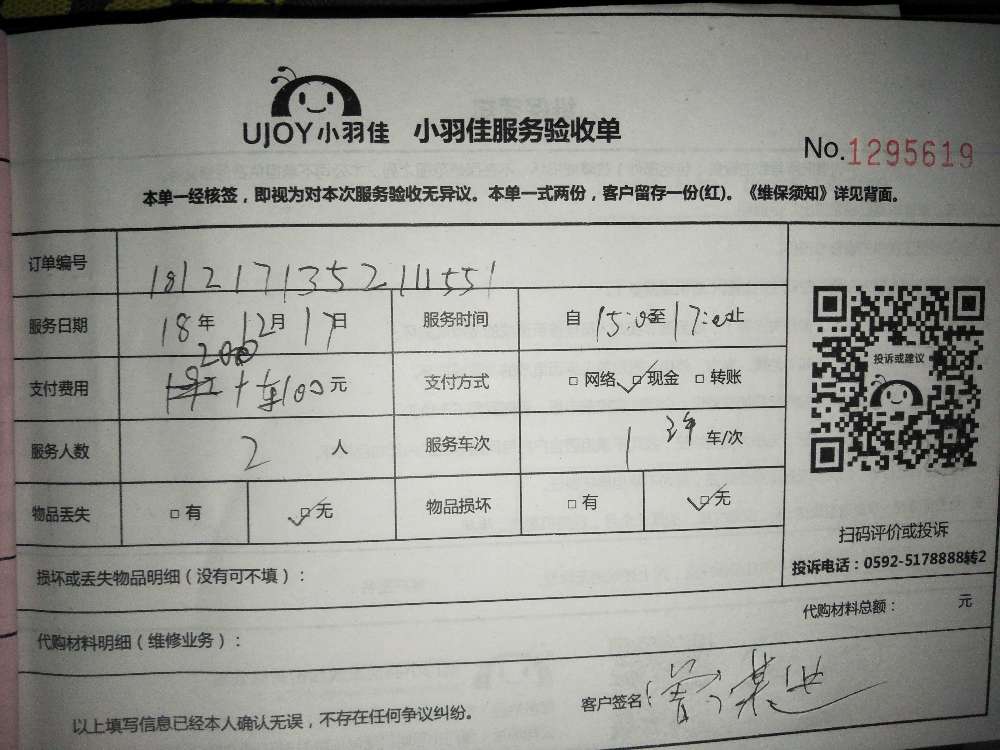 UJOY小羽佳 小羽佳服务验收单
No.1295619
本单一经核签，即视为对本次服务验收无异议。本单一式两份，客户留存一份(红)。《维保须知》详见背面。
订单编号 181217135211551
服务日期 18年 12月 17日 服务时间 自 15:00至 17:00止
200
支付费用 + 车100元 支付方式 □ 网络 □ 现金 □ 转账
投诉或建议
服务人数 2 人 服务车次 1 车/次
物品丢失 □ 有 □ 无 物品损坏 □ 有 □ 无
扫码评价或投诉
投诉电话：0592-5178888转2
损坏或丢失物品明细（没有可不填）：
代购材料总额： 元
代购材料明细（维修业务）：
客户签名：
以上填写信息已经本人确认无误，不存在任何争议纠纷。